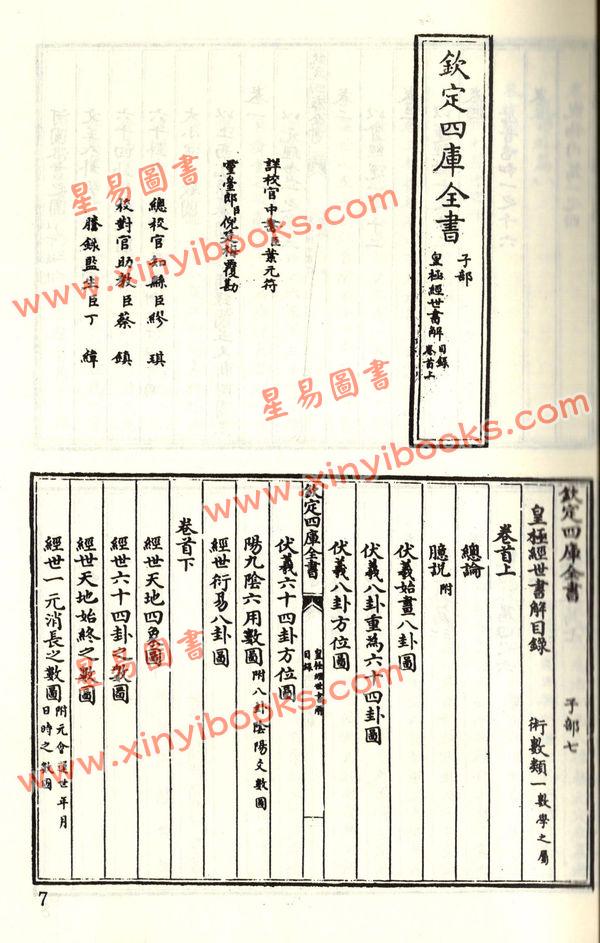 欽定四庫全書
子部
皇極經世書解
目錄
卷首上
詳校官中書臣葉元符
靈臺郎臣倪廷梅覆勘
總校官知縣臣繆琪
校對官助教臣蔡鎮
謄錄監生臣丁緯
欽定四庫全書 子部七
皇極經世書解目錄 術數類一數學之屬
卷首上
總論
臆說附
伏羲始畫八卦圖
伏羲八卦重為六十四卦圖
伏羲八卦方位圖
欽定四庫全書 皇極經世書解 目錄
伏羲六十四卦方位圖
陽九陰六用數圖附八卦陰陽爻數圖
經世衍易八卦圖
卷首下
經世天地四象圖
經世六十四卦之數圖
經世天地始終之數圖
經世一元消長之數圖附元會運世年月日時之數圖
7
星易圖書
www.xinyibooks.com
星易圖書
www.xinyibooks.com
星易圖書
www.xinyibooks.com
星易圖書
www.xinyibooks.com